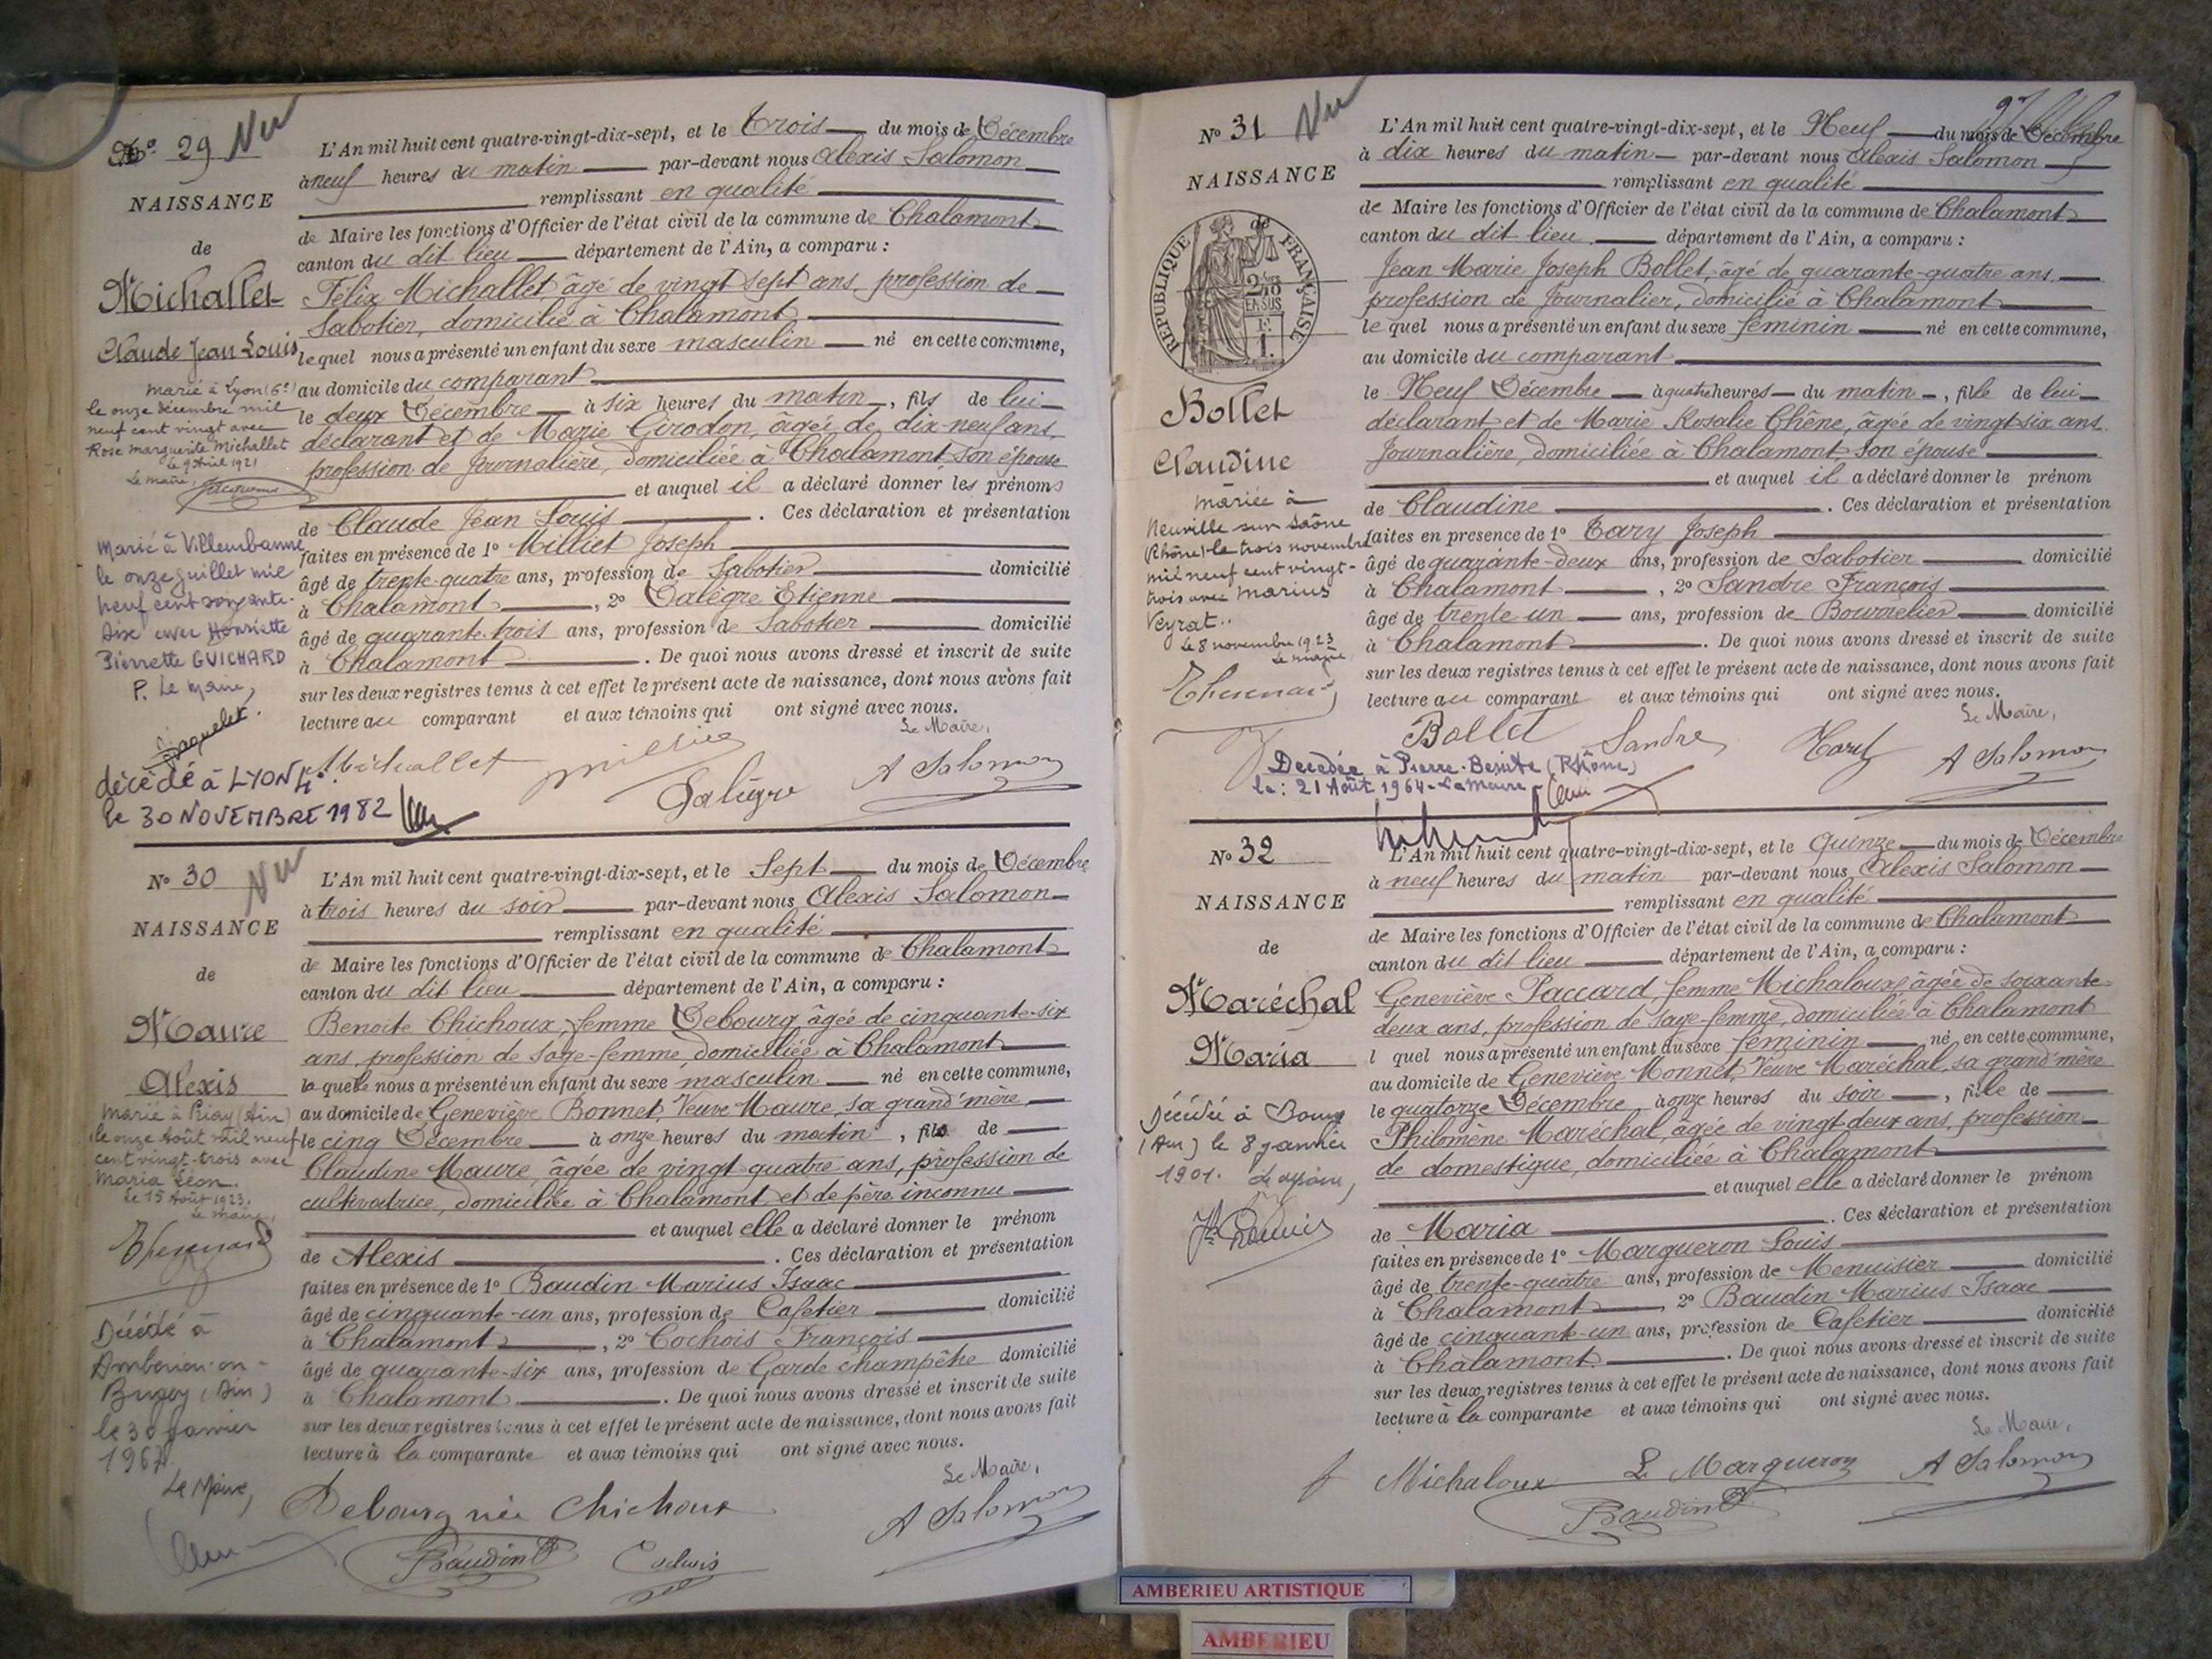 N° 29 Vu
NAISSANCE
de
Michallet
Claude Jean Louis
Marié à Lyon (6e)
le onze décembre mil
neuf cent vingt avec
Rose Marguerite Michallet
Le 9 Avril 1921
Le Maire,
Marié à Villeurbanne
le onze juillet mil
neuf cent soixante-
dix avec Henriette
Pierrette GUICHARD
P. Le Maire,
décédé à LYON 4e.
le 30 NOVEMBRE 1982
L'An mil huit cent quatre-vingt-dix-sept, et le Trois du mois de Décembre
à neuf heures du matin par-devant nous Alexis Salomon
remplissant en qualité
de Maire les fonctions d'Officier de l'état civil de la commune de Chalamont
canton du dit lieu département de l'Ain, a comparu :
Félix Michallet, âgé de vingt sept ans, profession de
Sabotier, domicilié à Chalamont
lequel nous a présenté un enfant du sexe masculin né en cette commune,
au domicile du comparant
le deux Décembre à six heures du matin, fils de lui
déclarant et de Marie Girodon, âgée de dix-neuf ans,
profession de Journalière, domiciliée à Chalamont, son épouse
et auquel il a déclaré donner les prénoms
de Claude Jean Louis. Ces déclaration et présentation
faites en présence de 1° Milliet Joseph
âgé de trente-quatre ans, profession de Sabotier domicilié
à Chalamont, 2° Dalègre Etienne
âgé de quarante-trois ans, profession de Sabotier domicilié
à Chalamont. De quoi nous avons dressé et inscrit de suite
sur les deux registres tenus à cet effet le présent acte de naissance, dont nous avons fait
lecture au comparant et aux témoins qui ont signé avec nous.
Le Maire,
Michallet
A Salomon
N° 30 Vu
NAISSANCE
de
Maure
Alexis
Marié à Priay (Ain)
le onze Août mil neuf
cent vingt-trois avec
Maria Léon.
Le 15 Août 1923.
Le Maire,
Décédé à
Ambérieu-en-
Bugey (Ain)
le 30 Janvier
1967.
Le Maire,
L'An mil huit cent quatre-vingt-dix-sept, et le Sept du mois de Décembre
à trois heures du soir par-devant nous Alexis Salomon
remplissant en qualité
de Maire les fonctions d'Officier de l'état civil de la commune de Chalamont
canton du dit lieu département de l'Ain, a comparu :
Benoite Chichoux, femme Debourg âgée de cinquante-six
ans, profession de sage-femme, domiciliée à Chalamont
laquelle nous a présenté un enfant du sexe masculin né en cette commune,
au domicile de Geneviève Bonnet, Veuve Maure, sa grand'mère
le cinq Décembre à onze heures du matin, fils de
Claudine Maure, âgée de vingt quatre ans, profession de
cultivatrice, domiciliée à Chalamont, et de père inconnu
et auquel elle a déclaré donner le prénom
de Alexis. Ces déclaration et présentation
faites en présence de 1° Baudin Marius Isaac
âgé de cinquante-un ans, profession de Cafetier domicilié
à Chalamont, 2° Cochois François
âgé de quarante-six ans, profession de Garde champêtre domicilié
à Chalamont. De quoi nous avons dressé et inscrit de suite
sur les deux registres tenus à cet effet le présent acte de naissance, dont nous avons fait
lecture à la comparante et aux témoins qui ont signé avec nous.
Le Maire,
Debourg née Chichoux
A Salomon
Baudin
N° 31 Vu
NAISSANCE
de
RÉPUBLIQUE FRANÇAISE
EN SUS
Bollet
Claudine
Mariée à
Neuville sur Saône
(Rhône) le trois novembre
mil neuf cent vingt-
trois avec Marius
Veyrat..
Le 8 novembre 1923
Le Maire,
L'An mil huit cent quatre-vingt-dix-sept, et le Neuf du mois de Décembre
à dix heures du matin par-devant nous Alexis Salomon
remplissant en qualité
de Maire les fonctions d'Officier de l'état civil de la commune de Chalamont
canton du dit lieu département de l'Ain, a comparu :
Jean Marie Joseph Bollet, âgé de quarante-quatre ans,
profession de Journalier, domicilié à Chalamont
lequel nous a présenté un enfant du sexe féminin né en cette commune,
au domicile du comparant
le Neuf Décembre à quatre heures du matin, fille de lui
déclarant et de Marie Rosalie Chêne, âgée de vingt six ans.
Journalière, domiciliée à Chalamont, son épouse
et auquel il a déclaré donner le prénom
de Claudine. Ces déclaration et présentation
faites en présence de 1° Tary Joseph
âgé de quarante-deux ans, profession de Sabotier domicilié
à Chalamont, 2° Sandre François
âgé de trente un ans, profession de Bourrelier domicilié
à Chalamont. De quoi nous avons dressé et inscrit de suite
sur les deux registres tenus à cet effet le présent acte de naissance, dont nous avons fait
lecture au comparant et aux témoins qui ont signé avec nous.
Le Maire,
Bollet Sandre A Salomon
Décédée à Pierre-Bénite (Rhône)
le : 21 Août 1964 - Le Maire
N° 32
NAISSANCE
de
Maréchal
Maria
Décédée à Bourg
(Ain) le 8 janvier
1901. Le Maire,
L'An mil huit cent quatre-vingt-dix-sept, et le Quinze du mois de Décembre
à neuf heures du matin par-devant nous Alexis Salomon
remplissant en qualité
de Maire les fonctions d'Officier de l'état civil de la commune de Chalamont
canton du dit lieu département de l'Ain, a comparu :
Geneviève Paccard, femme Michaloux, âgée de soixante-
deux ans, profession de sage-femme, domiciliée à Chalamont
l quel nous a présenté un enfant du sexe féminin né en cette commune,
au domicile de Geneviève Monnet, Veuve Maréchal, sa grand'mère
le quatorze Décembre à onze heures du soir, fille de
Philomène Maréchal, âgée de vingt deux ans, profession
de domestique, domiciliée à Chalamont
et auquel elle a déclaré donner le prénom
de Maria. Ces déclaration et présentation
faites en présence de 1° Margueron Louis
âgé de trente-quatre ans, profession de Menuisier domicilié
à Chalamont, 2° Baudin Marius Isaac
âgé de cinquante-un ans, profession de Cafetier domicilié
à Chalamont. De quoi nous avons dressé et inscrit de suite
sur les deux registres tenus à cet effet le présent acte de naissance, dont nous avons fait
lecture à la comparante et aux témoins qui ont signé avec nous.
Le Maire,
f Michaloux L Margueron A Salomon
Baudin
AMBERIEU ARTISTIQUE
AMBERIEU